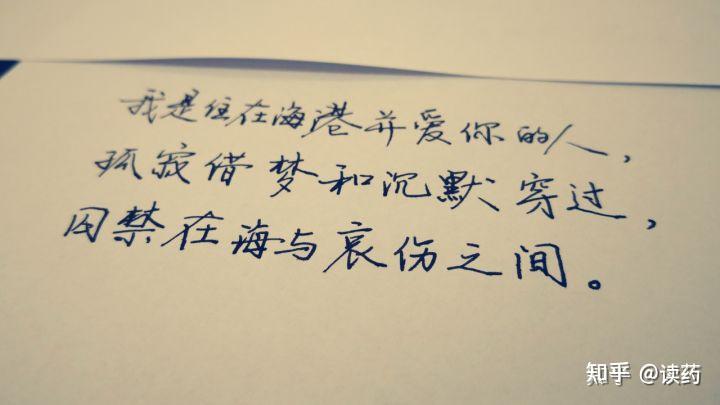 我是住在海港并爱你的人，
孤寂借梦和沉默穿过，
囚禁在海与哀伤之间。
知乎 @读药